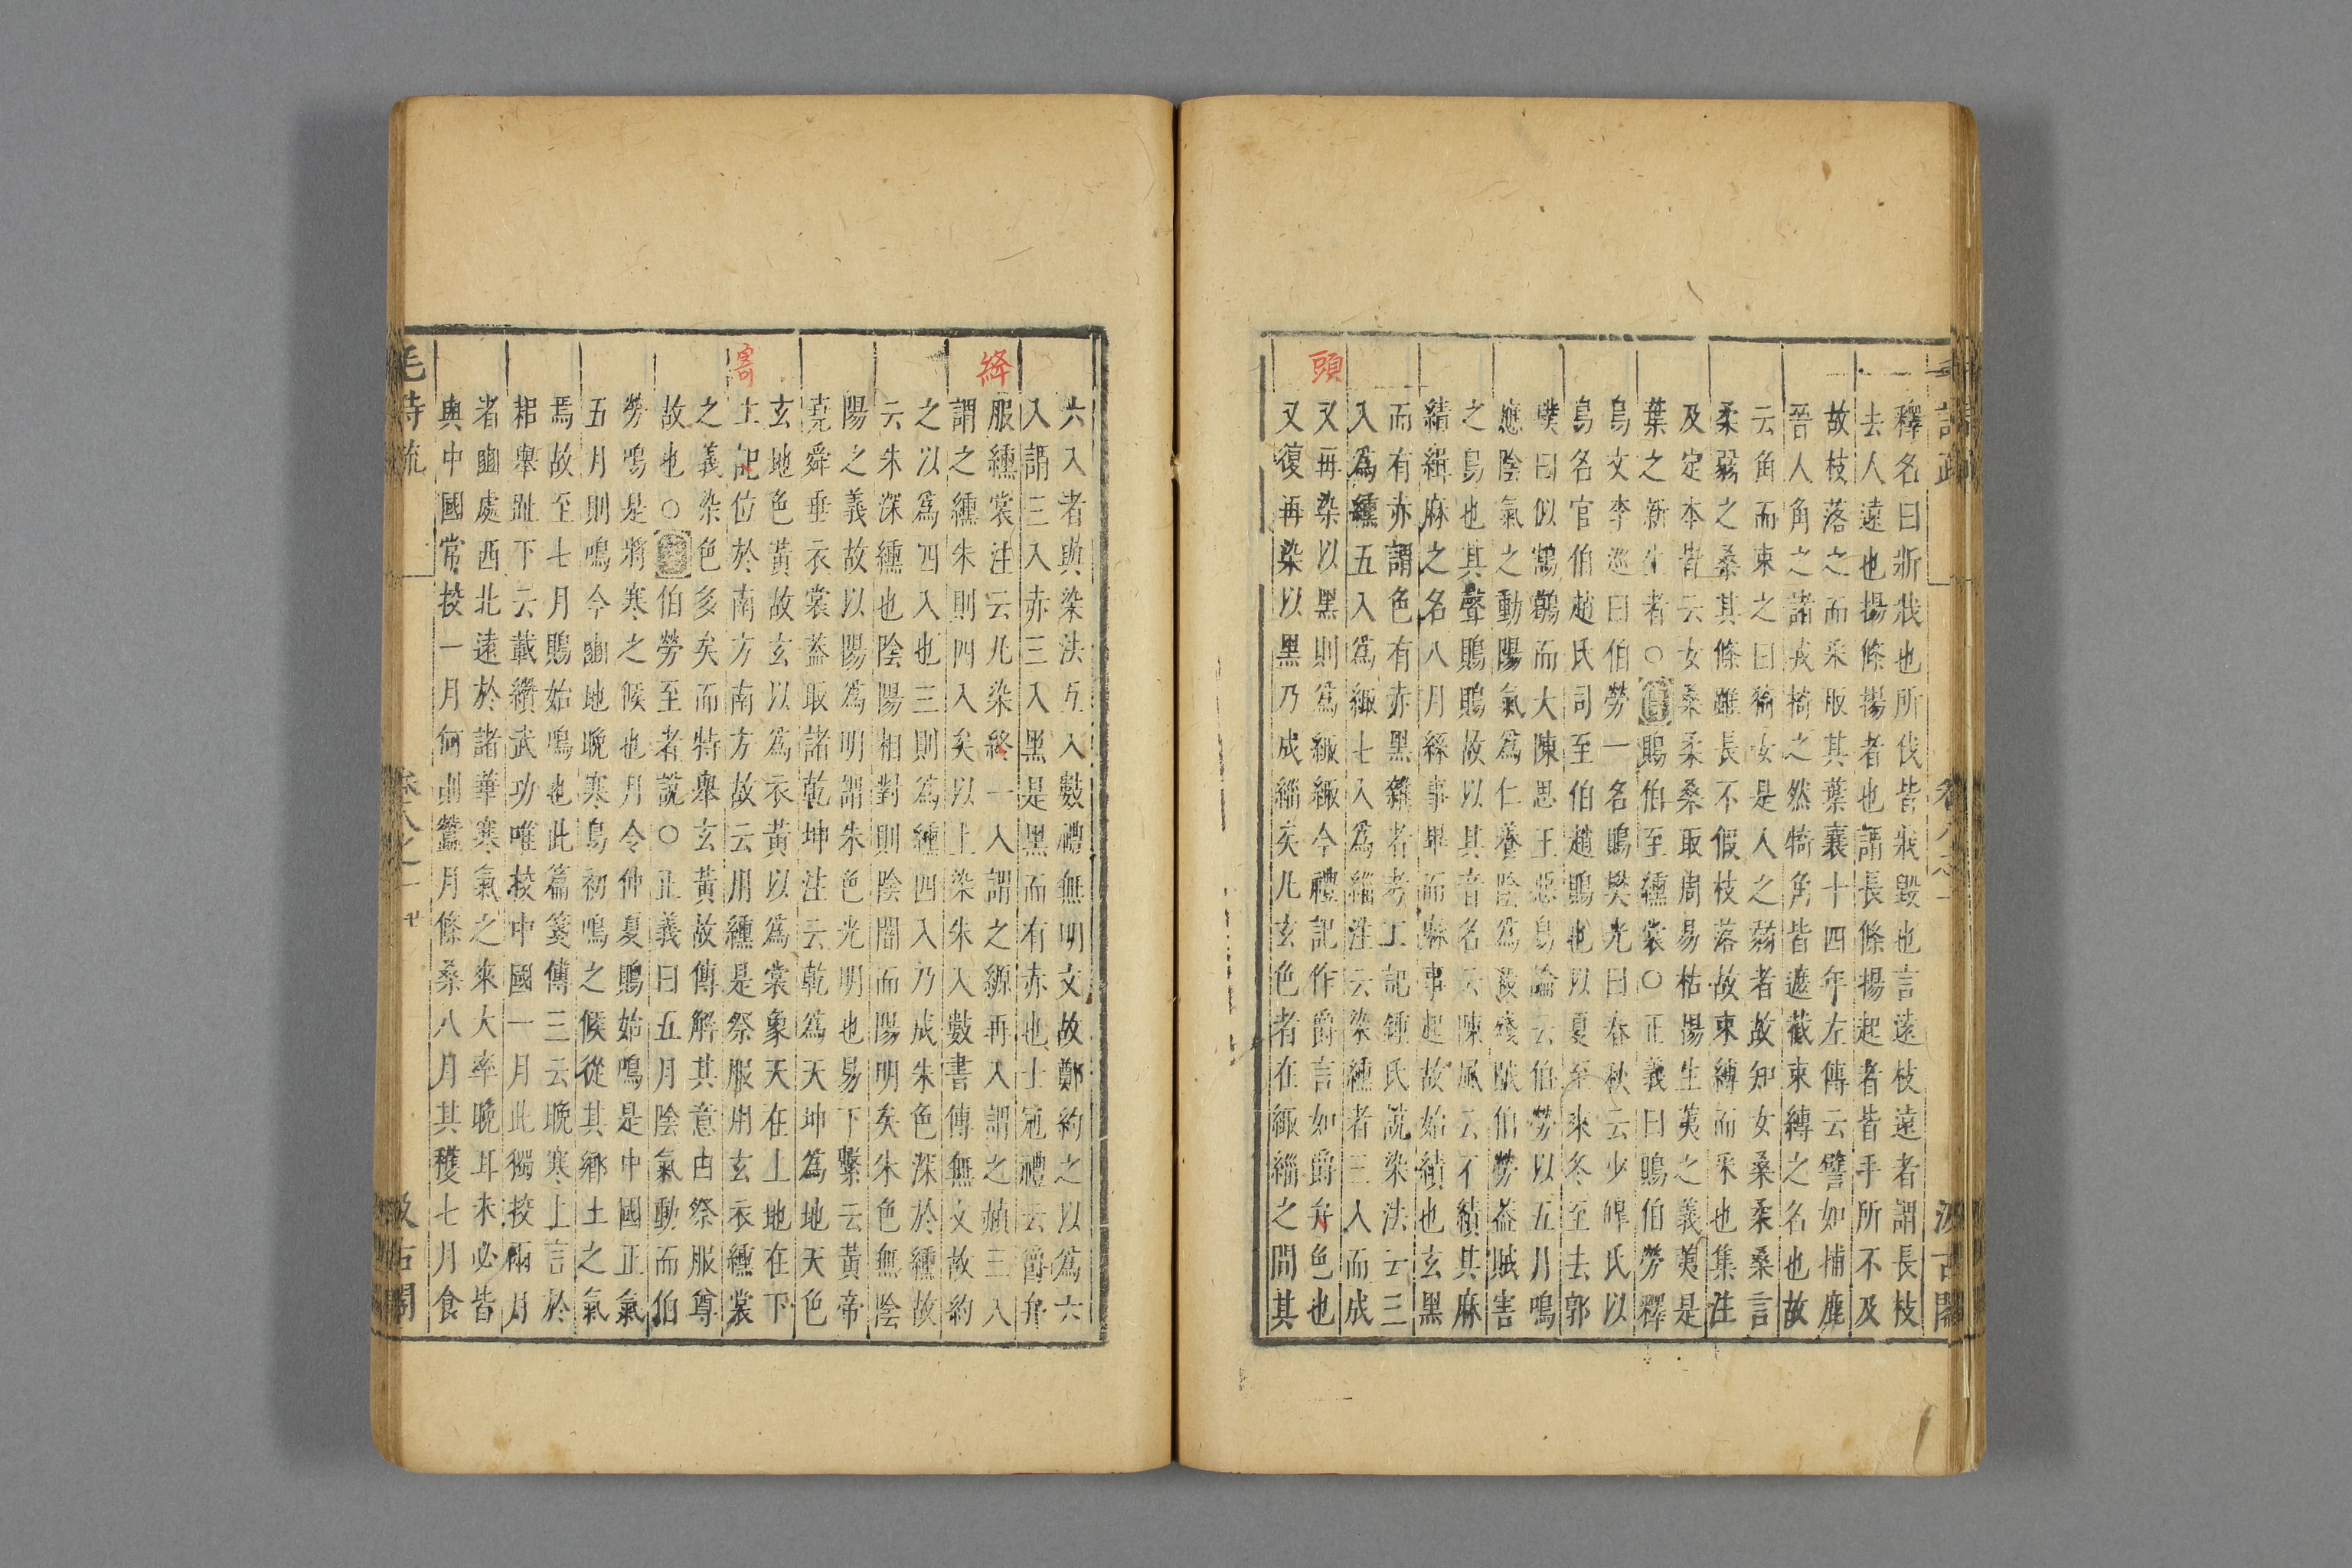 釋名曰斨戕也所伐皆戕毀也言遠枝遠者謂長枝
去人遠也揚條揚者也謂長條揚起者皆手所不及
故枝落之而采取其葉襄十四年左傳云譬如捕鹿
吾人角之諸戎掎之然犄角皆遮截束縛之名也故
云角而束之曰猗女是人之弱者故知女桑柔桑言
柔弱之桑其條雖長不假枝落故束縛而采也集注
及定本皆云女桑柔桑取周易枯楊生荑之義荑是
葉之新生者○鵙伯至纁裳○正義曰鵙伯勞釋
鳥文李巡曰伯勞一名鵙樊光曰春秋云少皞氏以
鳥名官伯趙氏司至伯趙鵙也以夏至來冬至去郭
璞曰似鶷鶡而大陳思王惡鳥論云伯勞以五月鳴
應陰氣之動陽氣為仁養陰為殺殘賊伯勞葢賊害
之鳥也其聲鵙鵙故以其音名云陳風云不績其麻
績緝麻之名八月絲事畢而麻事起故始績也玄黑
而有赤謂色有赤黑雜者考工記鍾氏說染法云三
入為纁五入為緅七入為緇注云染纁者三入而成
又再染以黑則為緅緅今禮記作爵言如爵弁色也
又復再染以黑乃成緇矣凡玄色者在緅緇之間其
頭
汲古閣
六入者與染法互入數禮無明文故鄭約之以為六
入謂三入赤三入黑是黑而有赤也士冠禮云爵弁
服纁裳注云凡染終一入謂之縓再入謂之赬三入
謂之纁朱則四入矣以上染朱入數書傳無文故約
之以為四入也三則為纁四入乃成朱色深於纁故
云朱深纁也陰陽相對則陰闇而陽明矣朱色無陰
陽之義故以陽為明謂朱色光明也易下繫云黃帝
堯舜垂衣裳葢取諸乾坤注云乾為天坤為地天色
玄地色黃故玄以為衣黃以為裳象天在上地在下
土記位於南方南方故云用纁是祭服用玄衣纁裳
之義染色多矣而特舉玄黃故傳解其意由祭服尊
故也○伯勞至者說○正義曰五月陰氣動而伯
勞鳴是將寒之候也月令仲夏鵙始鳴是中國正氣
五月則鳴今豳地晚寒鳥初鳴之候從其鄉土之氣
焉故至七月鵙始鳴也此篇箋傳三云晚寒上言於
耜舉趾下云載纘武功唯挍中國一月此獨挍兩月
者豳處西北遠於諸華寒氣之來大率晚耳未必皆
與中國常挍一月何則蠶月條桑八月其穫七月食
絳
寄
毛詩疏
卷八之一
汲古閣